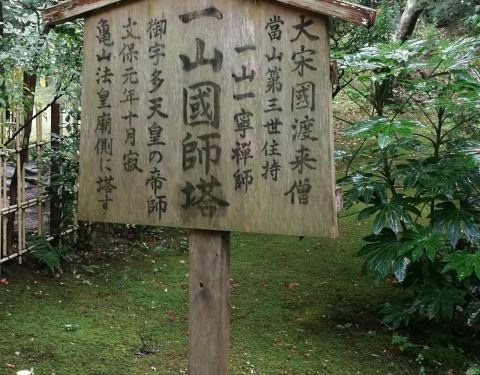 大宋國渡来僧
當山第三世住持
一山一寧禅師
一山國師塔
御宇多天皇の帝師
文保元年十月寂
亀山法皇廟側に塔す